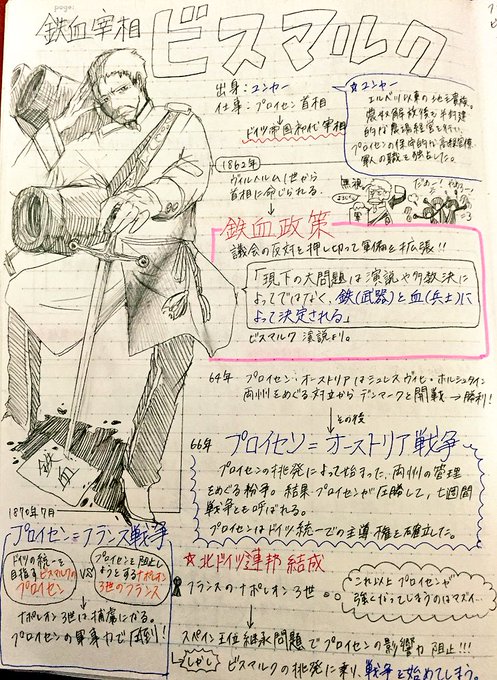 page:
鉄血宰相
ビスマルク
出身：ユンカー
仕事：プロイセン首相
ドイツ帝国初代宰相
☆ユンカー
エルベ川以東の地主貴族。
農奴解放後も半封建
的な農場経営を行い、
プロイセンの保守的な高級官僚、
軍人の職を独占した。
1862年
ヴィルヘルム1世から
首相に命じられる。
無視
鉄血政策
議会の反対を押し切って軍備を拡張!!
「現下の大問題は演説や多数決に
よってではなく、鉄(武器)と血(兵士)に
よって決定される」
ビスマルク 演説より。
64年 プロイセン・オーストリアはシュレスヴィヒ・ホルシュタイン
両州をめぐる対立からデンマークと開戦→勝利!
その後
66年 プロイセン=オーストリア戦争
プロイセンの挑発によって始まった、両州の管理
をめぐる紛争。結果プロイセンが圧勝して、七週間
戦争とも呼ばれる。
プロイセンはドイツ統一での主導権を確立した。
鉄
血
1870年7月
プロイセン=フランス戦争
ドイツの統一を
目指すビスマルクの
プロイセン
VS
プロイセンを阻止し
ようとするナポレオン
3世のフランス
ナポレオン3世は捕虜になる。
プロイセンの軍事力で圧倒!
☆北ドイツ連邦 結成
フランスのナポレオン3世
これ以上プロイセンが
強くなってしまうのはマズイ…
スペイン王位継承問題でプロイセンの影響力阻止!!!
しかし
ビスマルクの挑発に乗り、戦争を始めてしまう。